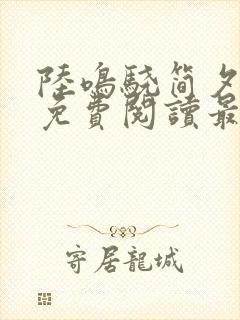 陸鳴驍简夕
免費閱讀最
寄居龍城